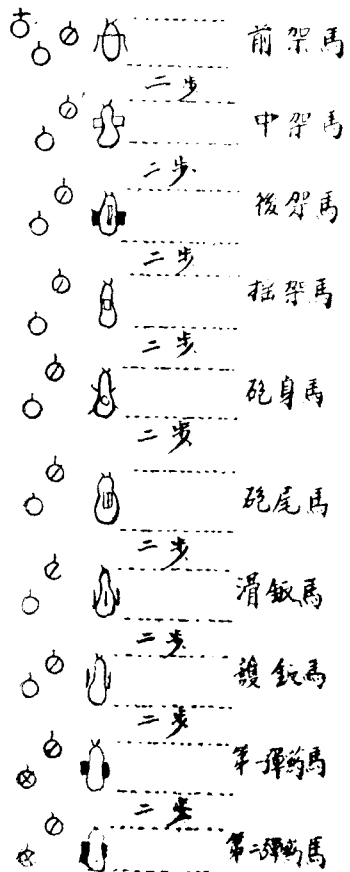 前架馬
二步
中架馬
二步
後架馬
二步
搖架馬
二步
砲身馬
二步
砲尾馬
二步
滑鈑馬
二步
護鈑馬
二步
第一彈药馬
二步
第二彈药馬